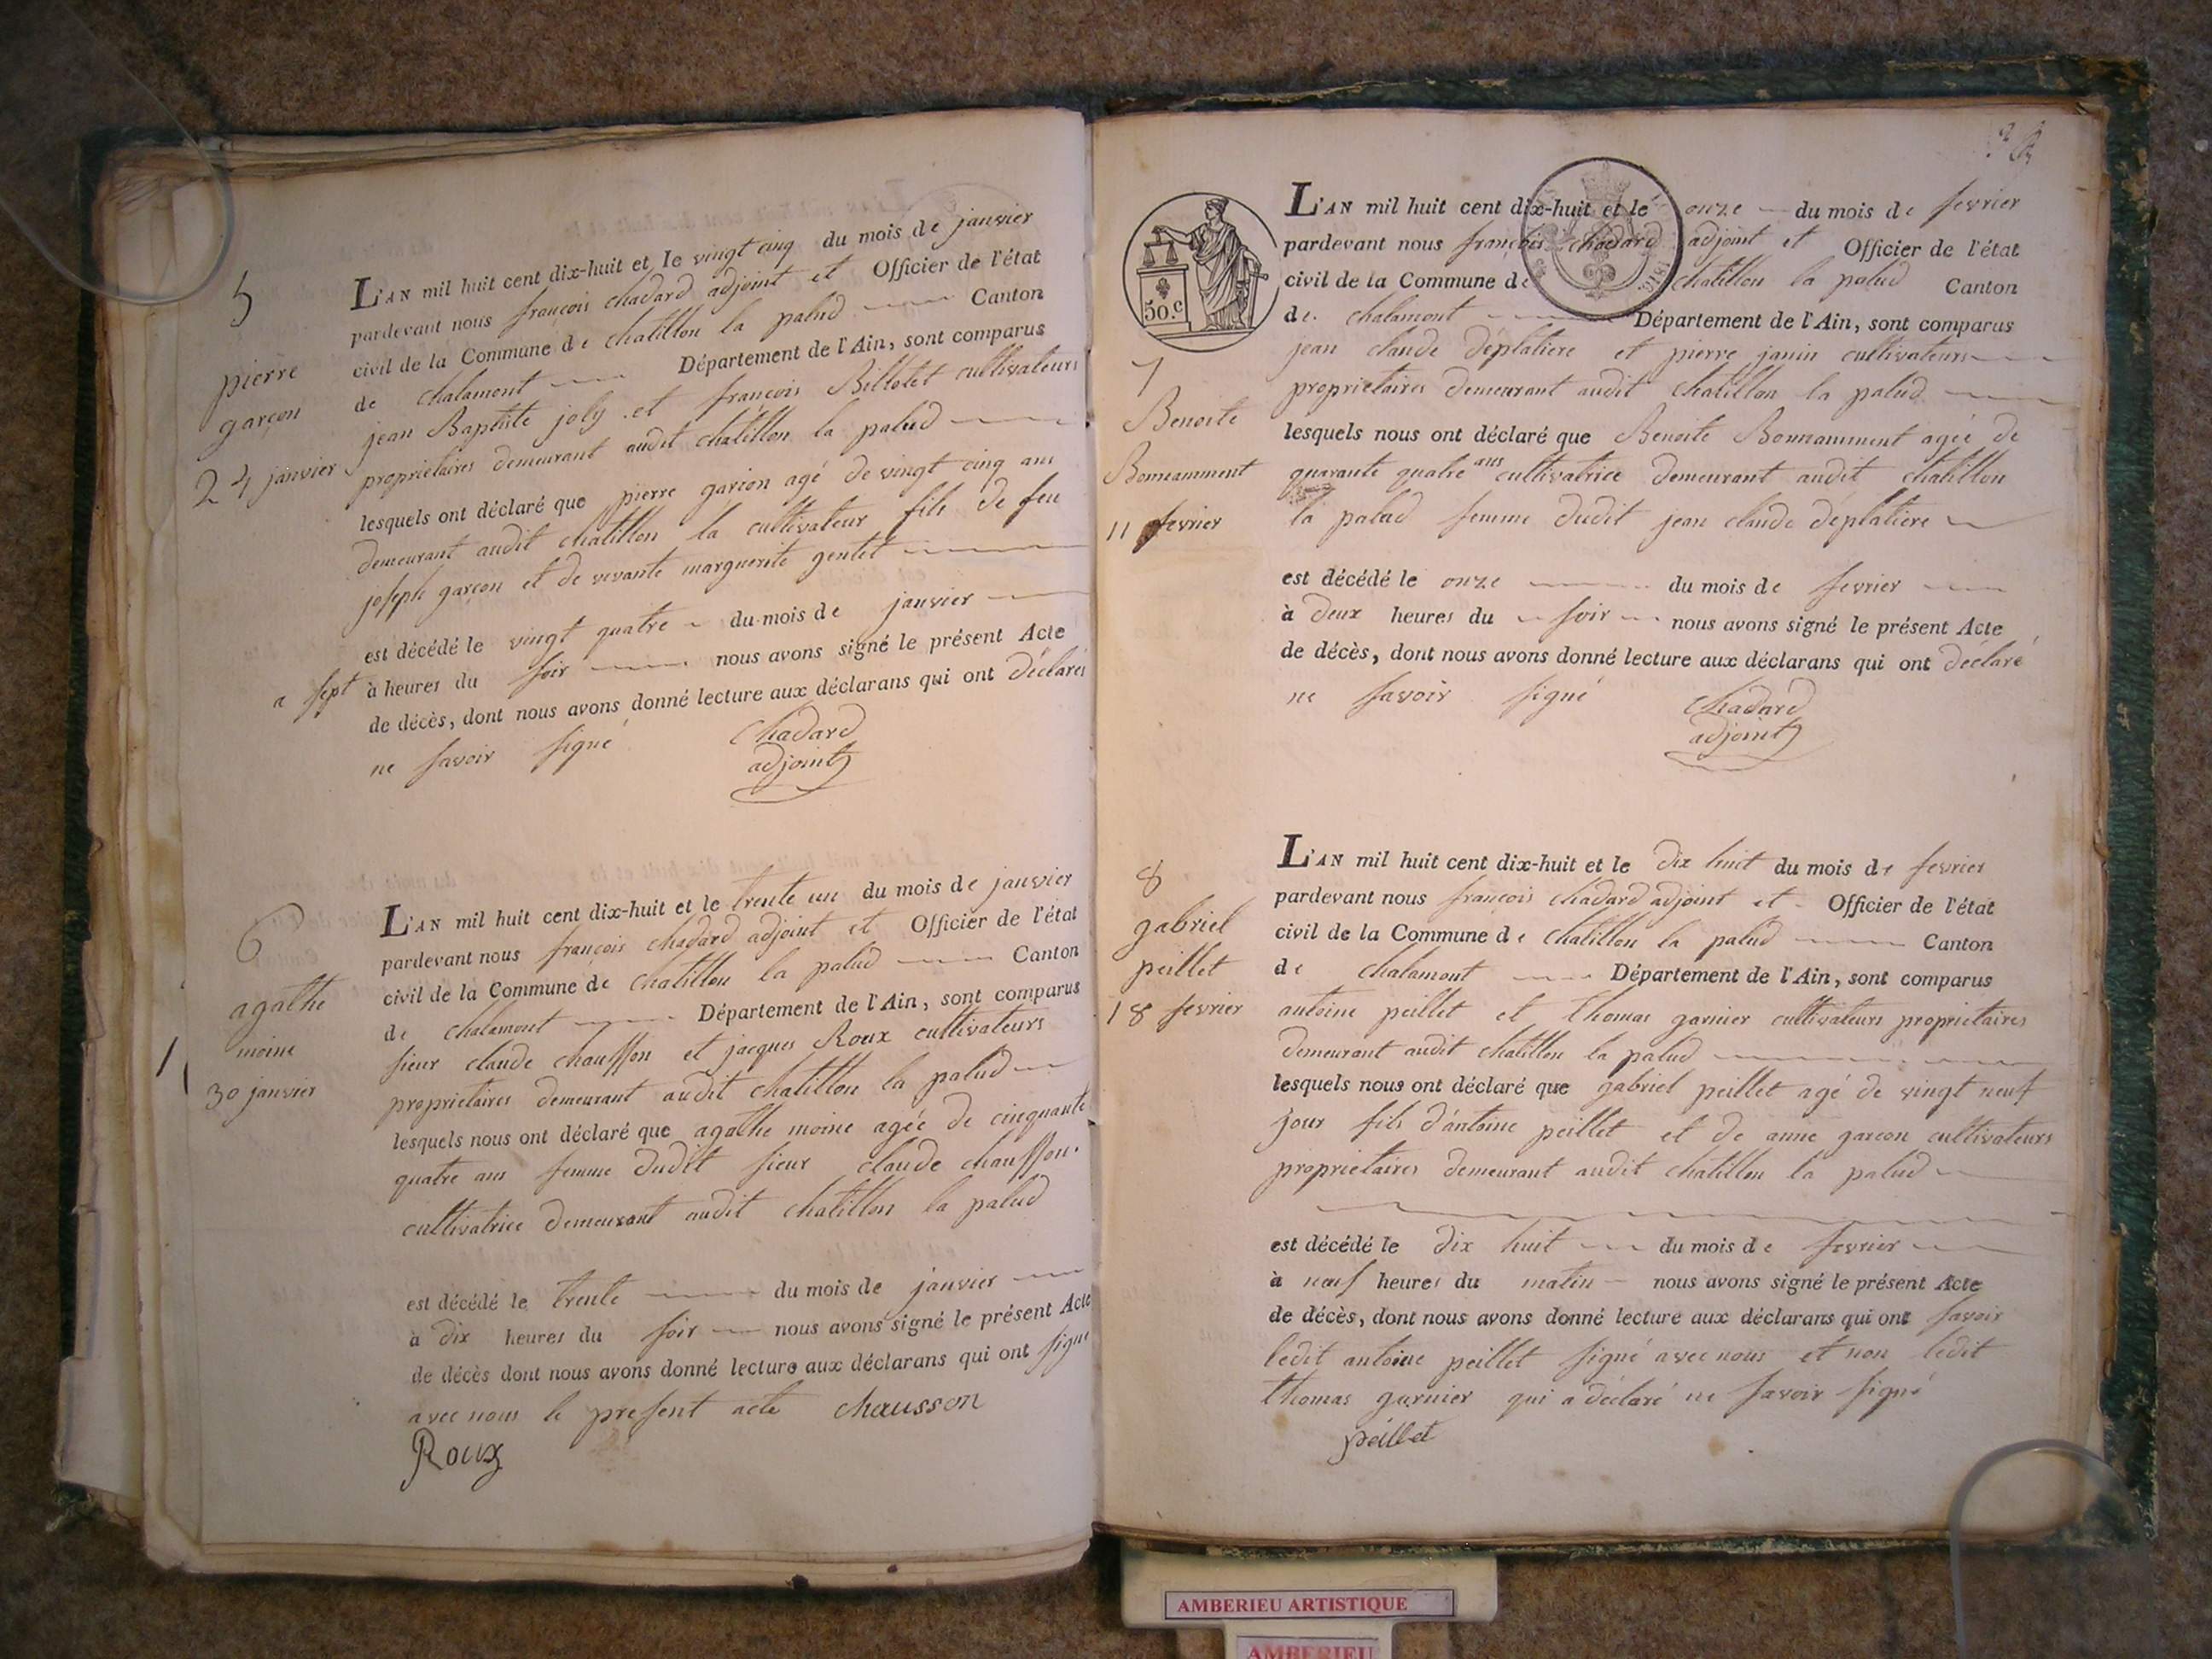 5
pierre
garçon
24 janvier
L'AN mil huit cent dix-huit et le vingt cinq du mois de janvier
pardevant nous françois chadard adjoint et Officier de l'état
civil de la Commune de chatillon la palud Canton
de chalamont Département de l'Ain, sont comparus
jean Baptiste joly et françois Billotet cultivateurs
proprietaires demeurant audit chatillon la palud
lesquels ont déclaré que pierre garçon agé de vingt cinq ans
demeurant audit chatillon la cultivateur fils de feu
joseph garçon et de vivante marguerite gentet
est décédé le vingt quatre du mois de janvier
a sept à heures du soir nous avons signé le présent Acte
de décès, dont nous avons donné lecture aux déclarans qui ont déclarés
ne savoir signé chadard
adjoint
6
agathe
moine
30 janvier
L'AN mil huit cent dix-huit et le trente un du mois de janvier
pardevant nous françois chadard adjoint et Officier de l'état
civil de la Commune de chatillon la palud Canton
de chalamont Département de l'Ain, sont comparus
sieur claude chausson et jacques Roux cultivateurs
proprietaires demeurant audit chatillon la palud
lesquels nous ont déclaré que agathe moine agée de cinquante
quatre ans femme dudit sieur claude chausson
cultivatrice demeurant audit chatillon la palud
est décédé le trente du mois de janvier
à dix heures du soir nous avons signé le présent Acte
de décès dont nous avons donné lecture aux déclarans qui ont signé
avec nous le present acte chausson
Roux
50.c
7
Benoite
Bonnamment
11 fevrier
L'AN mil huit cent dix-huit et le onze du mois de fevrier
pardevant nous françois chadard adjoint et Officier de l'état
civil de la Commune de chatillon la palud Canton
de chalamont Département de l'Ain, sont comparus
jean claude déplatiere et pierre janin cultivateurs
proprietaires demeurant audit chatillon la palud
lesquels nous ont déclaré que Benoite Bonnamment agée de
quarante quatre ans cultivatrice demeurant audit chatillon
la palud femme dudit jean claude déplatiere
est décédé le onze du mois de fevrier
à deux heures du soir nous avons signé le présent Acte
de décès, dont nous avons donné lecture aux déclarans qui ont déclaré
ne savoir signé chadard
adjoint
8
gabriel
peillet
18 fevrier
L'AN mil huit cent dix-huit et le dix huit du mois de fevrier
pardevant nous françois chadard adjoint et Officier de l'état
civil de la Commune de chatillon la palud Canton
de chalamont Département de l'Ain, sont comparus
antoine peillet et thomas garnier cultivateurs proprietaires
demeurant audit chatillon la palud
lesquels nous ont déclaré que gabriel peillet agé de vingt neuf
jour fils d'antoine peillet et de anne garcon cultivateurs
proprietaires demeurant audit chatillon la palud
est décédé le dix huit du mois de fevrier
à neuf heures du matin nous avons signé le présent Acte
de décès, dont nous avons donné lecture aux déclarans qui ont savoir
ledit antoine peillet signé avec nous et non ledit
thomas garnier qui a déclaré ne savoir signé
peillet
AMBERIEU ARTISTIQUE
AMBERIEU